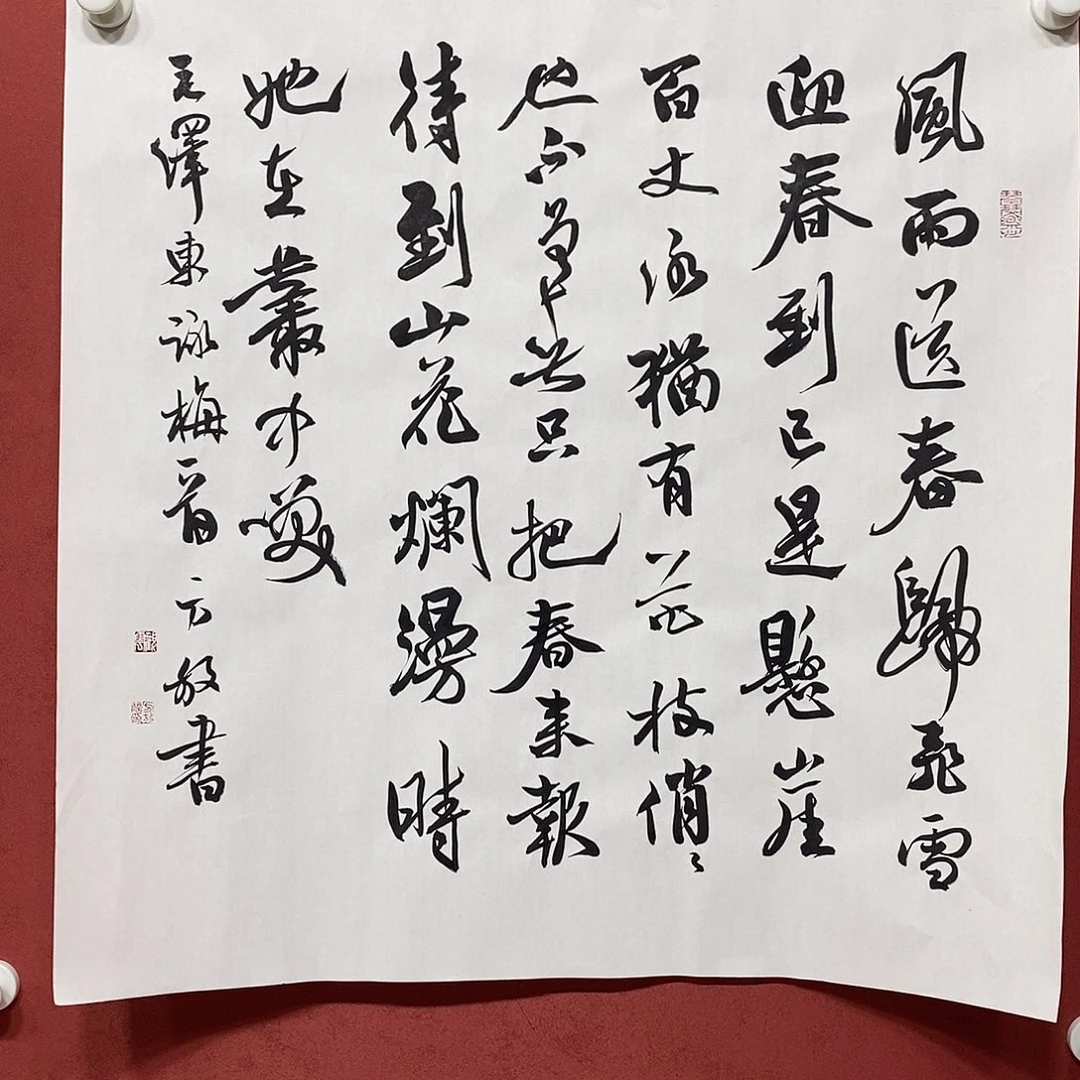 風雨送春歸飛雪
迎春到已是懸崖
百丈冰猶有花枝俏々
也不爭春只把春來報
待到山花爛漫時
她在叢中咲
毛澤東詠梅一首 書